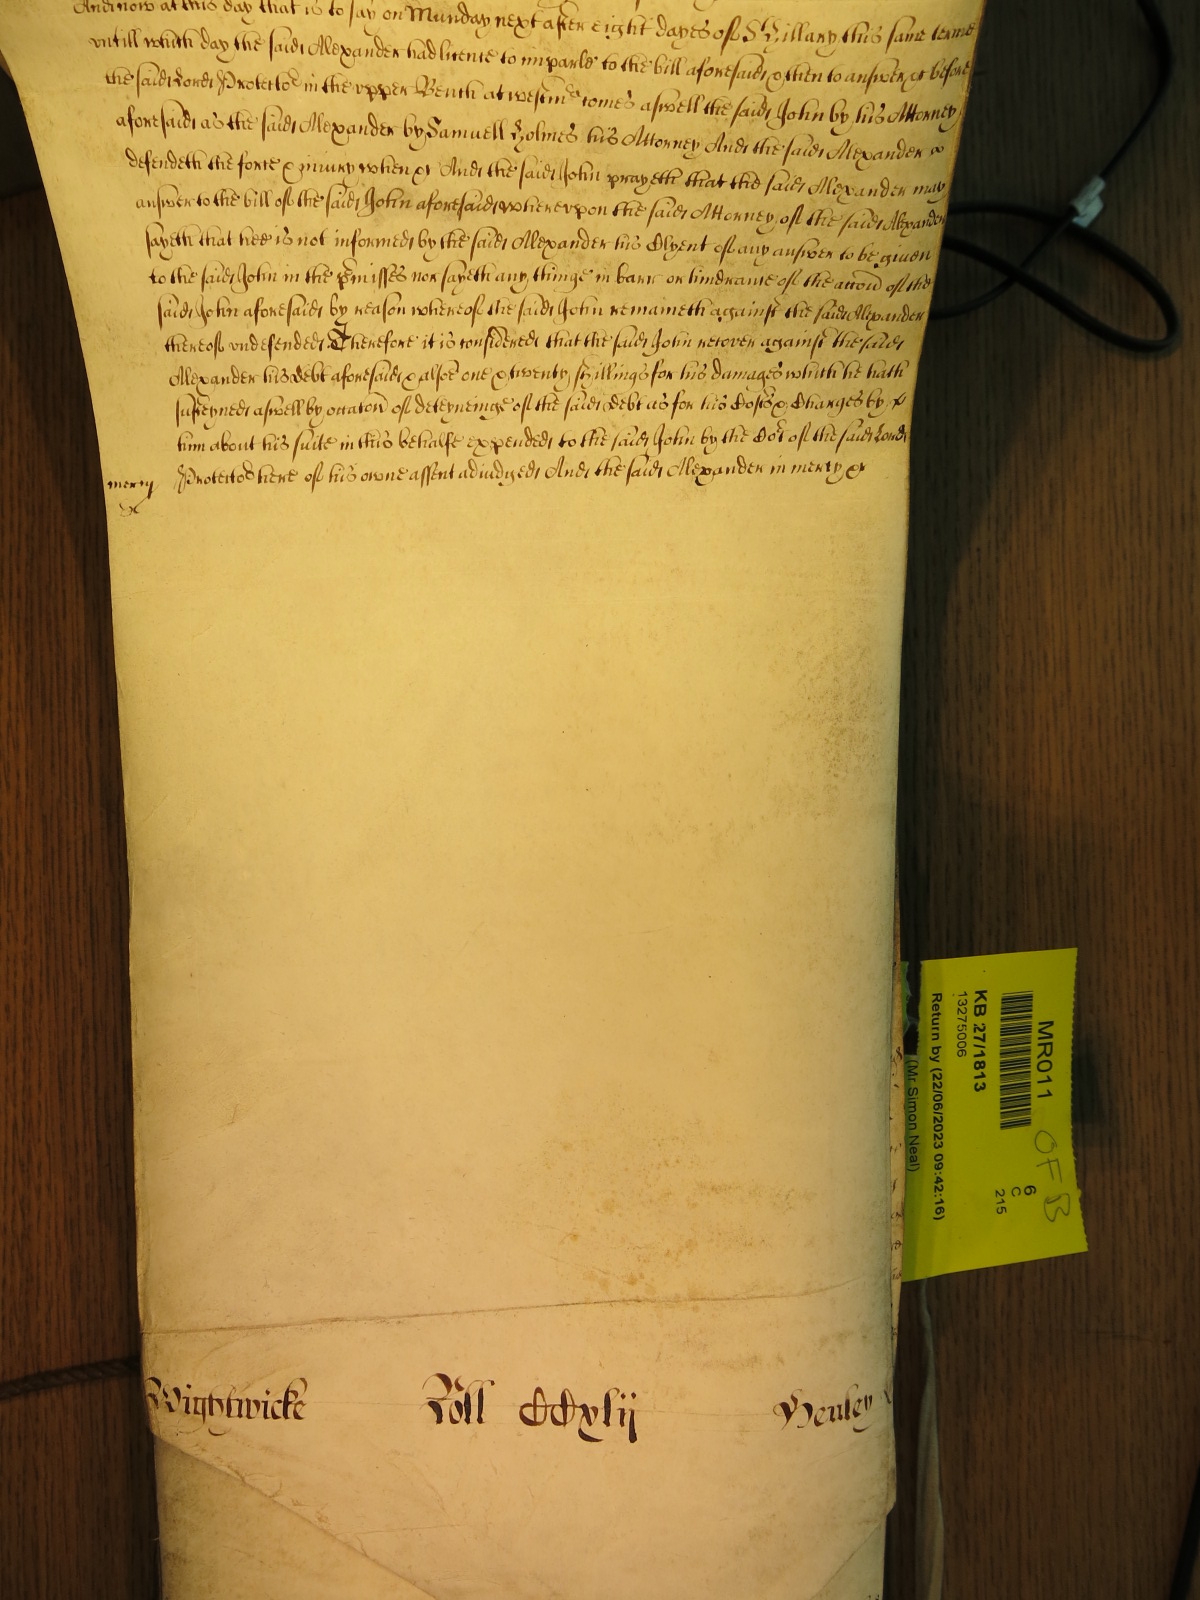 And now at this day that is to say on Munday next after eight dayes of St Hillary this same terme
untill which day the said Alexander had licence to imparle to the bill aforesaid & then to answer &c before
the said Lord Protector in the upper Bench at Westmr comes aswell the said John by his Attorney
aforesaid as the said Alexander by Samuell Holmes his Attorney And the said Alexander
defendeth the force & iniury when &c And the said John prayeth that the said Alexander may
answer to the bill of the said John aforesaid whereupon the said Attorney of the said Alexander
sayeth that hee is not informed by the said Alexander his Clyent of any answer to be given
to the said John in the p'misses nor sayeth any thinge in barr or hindrance of the accon of the
said John aforesaid by reason whereof the said John remaineth against the said Alexander
thereof undefended Therefore it is considered that the said John recover against the said
Alexander his debt aforesaid & alsoe one & twenty shillings for his damages which he hath
susteyned aswell by occacon of deteyneinge of the said debt as for his Costs & Charges by
him about his suite in this behalfe expended to the said John by the Cort of the said Lord
Protector here of his owne assent adiudged And the said Alexander in mercy &c
mercy
Wightwicke Roll CCxlij Henley
MR011
KB 27/1813
13275006
Return by (22/06/2023 09:42:16)
(Mr Simon Neal)
6
C
215
OF B